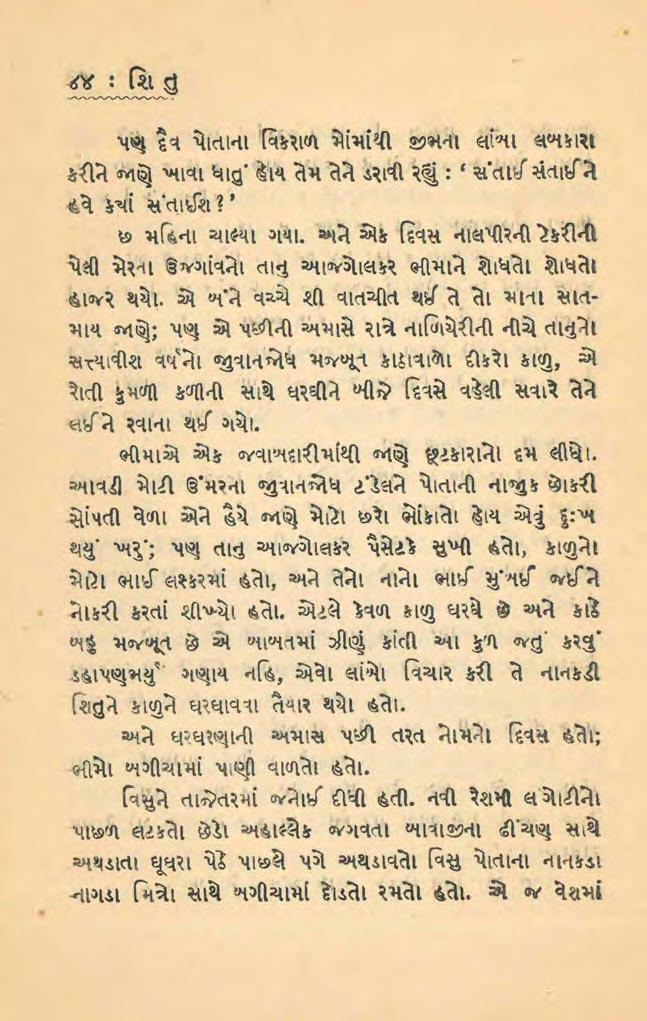 ૮૪ : શિતુ
પણ દૈવ પોતાના વિકરાળ મોંમાંથી જીભના લાંબા લબકારા
કરીને જાણે ખાવા ધાતું હોય તેમ તેને ડરાવી રહ્યું : ‘ સંતાઈ સંતાઈને
હવે ક્યાં સંતાઈશ ?’
છ મહિના ચાલ્યા ગયા. અને એક દિવસ નાલપીરની ટેકરીની
પેલી મેરના ઉજગાંવનો તાનુ આજગોલકર ભીમાને શોધતો શોધતો
હાજર થયો. એ બંને વચ્ચે શી વાતચીત થઈ તે તો માતા સાત-
માય જાણે; પણ એ પછીની અમાસે રાત્રે નાળિયેરીની નીચે તાનુનો
સત્ત્યાવીશ વર્ષનો જુવાનજોધ મજબૂત કાઠાવાળો દીકરો કાળુ, એ
રોતી કુમળી કળીની સાથે ઘરઘીને બીજે દિવસે વહેલી સવારે તેને
લઈને રવાના થઈ ગયો.
ભીમાએ એક જવાબદારીમાંથી જાણે છૂટકારાનો દમ લીધો.
આવડી મોટી ઉંમરના જુવાનજોધ ટંડેલને પોતાની નાજુક છોકરી
સોંપતી વેળા એને હૈયે જાણે મોટો છરો ભોંકાતો હોય એવું દુઃખ
થયું ખરું; પણ તાનુ આજગોલકર પૈસેટકે સુખી હતો, કાળુનો
મોટો ભાઈ લશ્કરમાં હતો, અને તેનો નાનો ભાઈ મુંબઈ જઈને
નોકરી કરતાં શીખ્યો હતો. એટલે કેવળ કાળુ ઘરધે છે અને કાઠે
બહુ મજબૂત છે એ બાબતમાં ઝીણું કાંતી આ કુળ જતું કરવું
ડહાપણભર્યું ગણાય નહિ, એવો લાંબો વિચાર કરી તે નાનકડી
શિતુને કાળુને ઘરઘાવવા તૈયાર થયો હતો.
અને ઘરઘરણાની અમાસ પછી તરત નોમનો દિવસ હતો;
ભીમો બગીચામાં પાણી વાળતો હતો.
વિસુને તાજેતરમાં જનોઈ દીધી હતી. નવી રેશમી લંગોટીનો
પાછળ લટકતો છેડો અહાલ્લેક જગવતા બાવાજીના ઢીંચણ સાથે
અથડાતા ઘૂઘરા પેઠે પાછલે પગે અથડાવતો વિસુ પોતાના નાનકડા
નાગડા મિત્રો સાથે બગીચામાં દોડતો રમતો હતો. એ જ વેશમાં